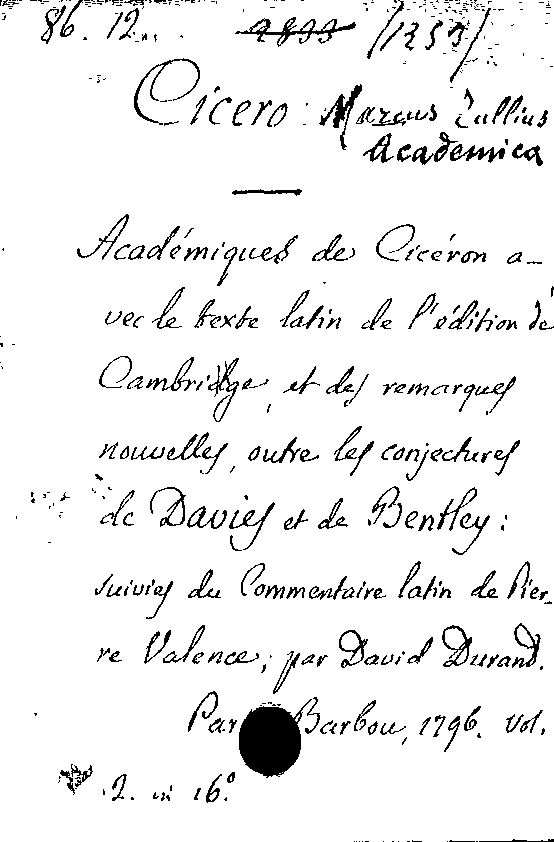 86. 12.. 2833 /1253/
Cicero: Marcus Tullius
Academica
Académiques de Cicéron a-
vec le texte latin de l'édition de
Cambridge, et des remarques
nouvelles, outre les conjectures
de Davies et de Bentley:
suivies du Commentaire latin de Pier-
re Valence; par David Durand.
Par Barbou, 1796. Vol.
2. in 16.°